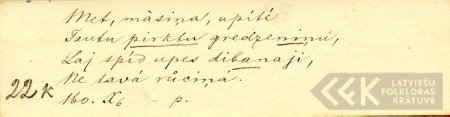 Met, māsiņa, upītē
Tautu pirktu gredzeniņu,
Laj spīd upes dibanaji,
Ne tavā rūciņā.
22 K
160. X6 p.
LATVIEŠU
FOLKLORAS
KRĀTUVE